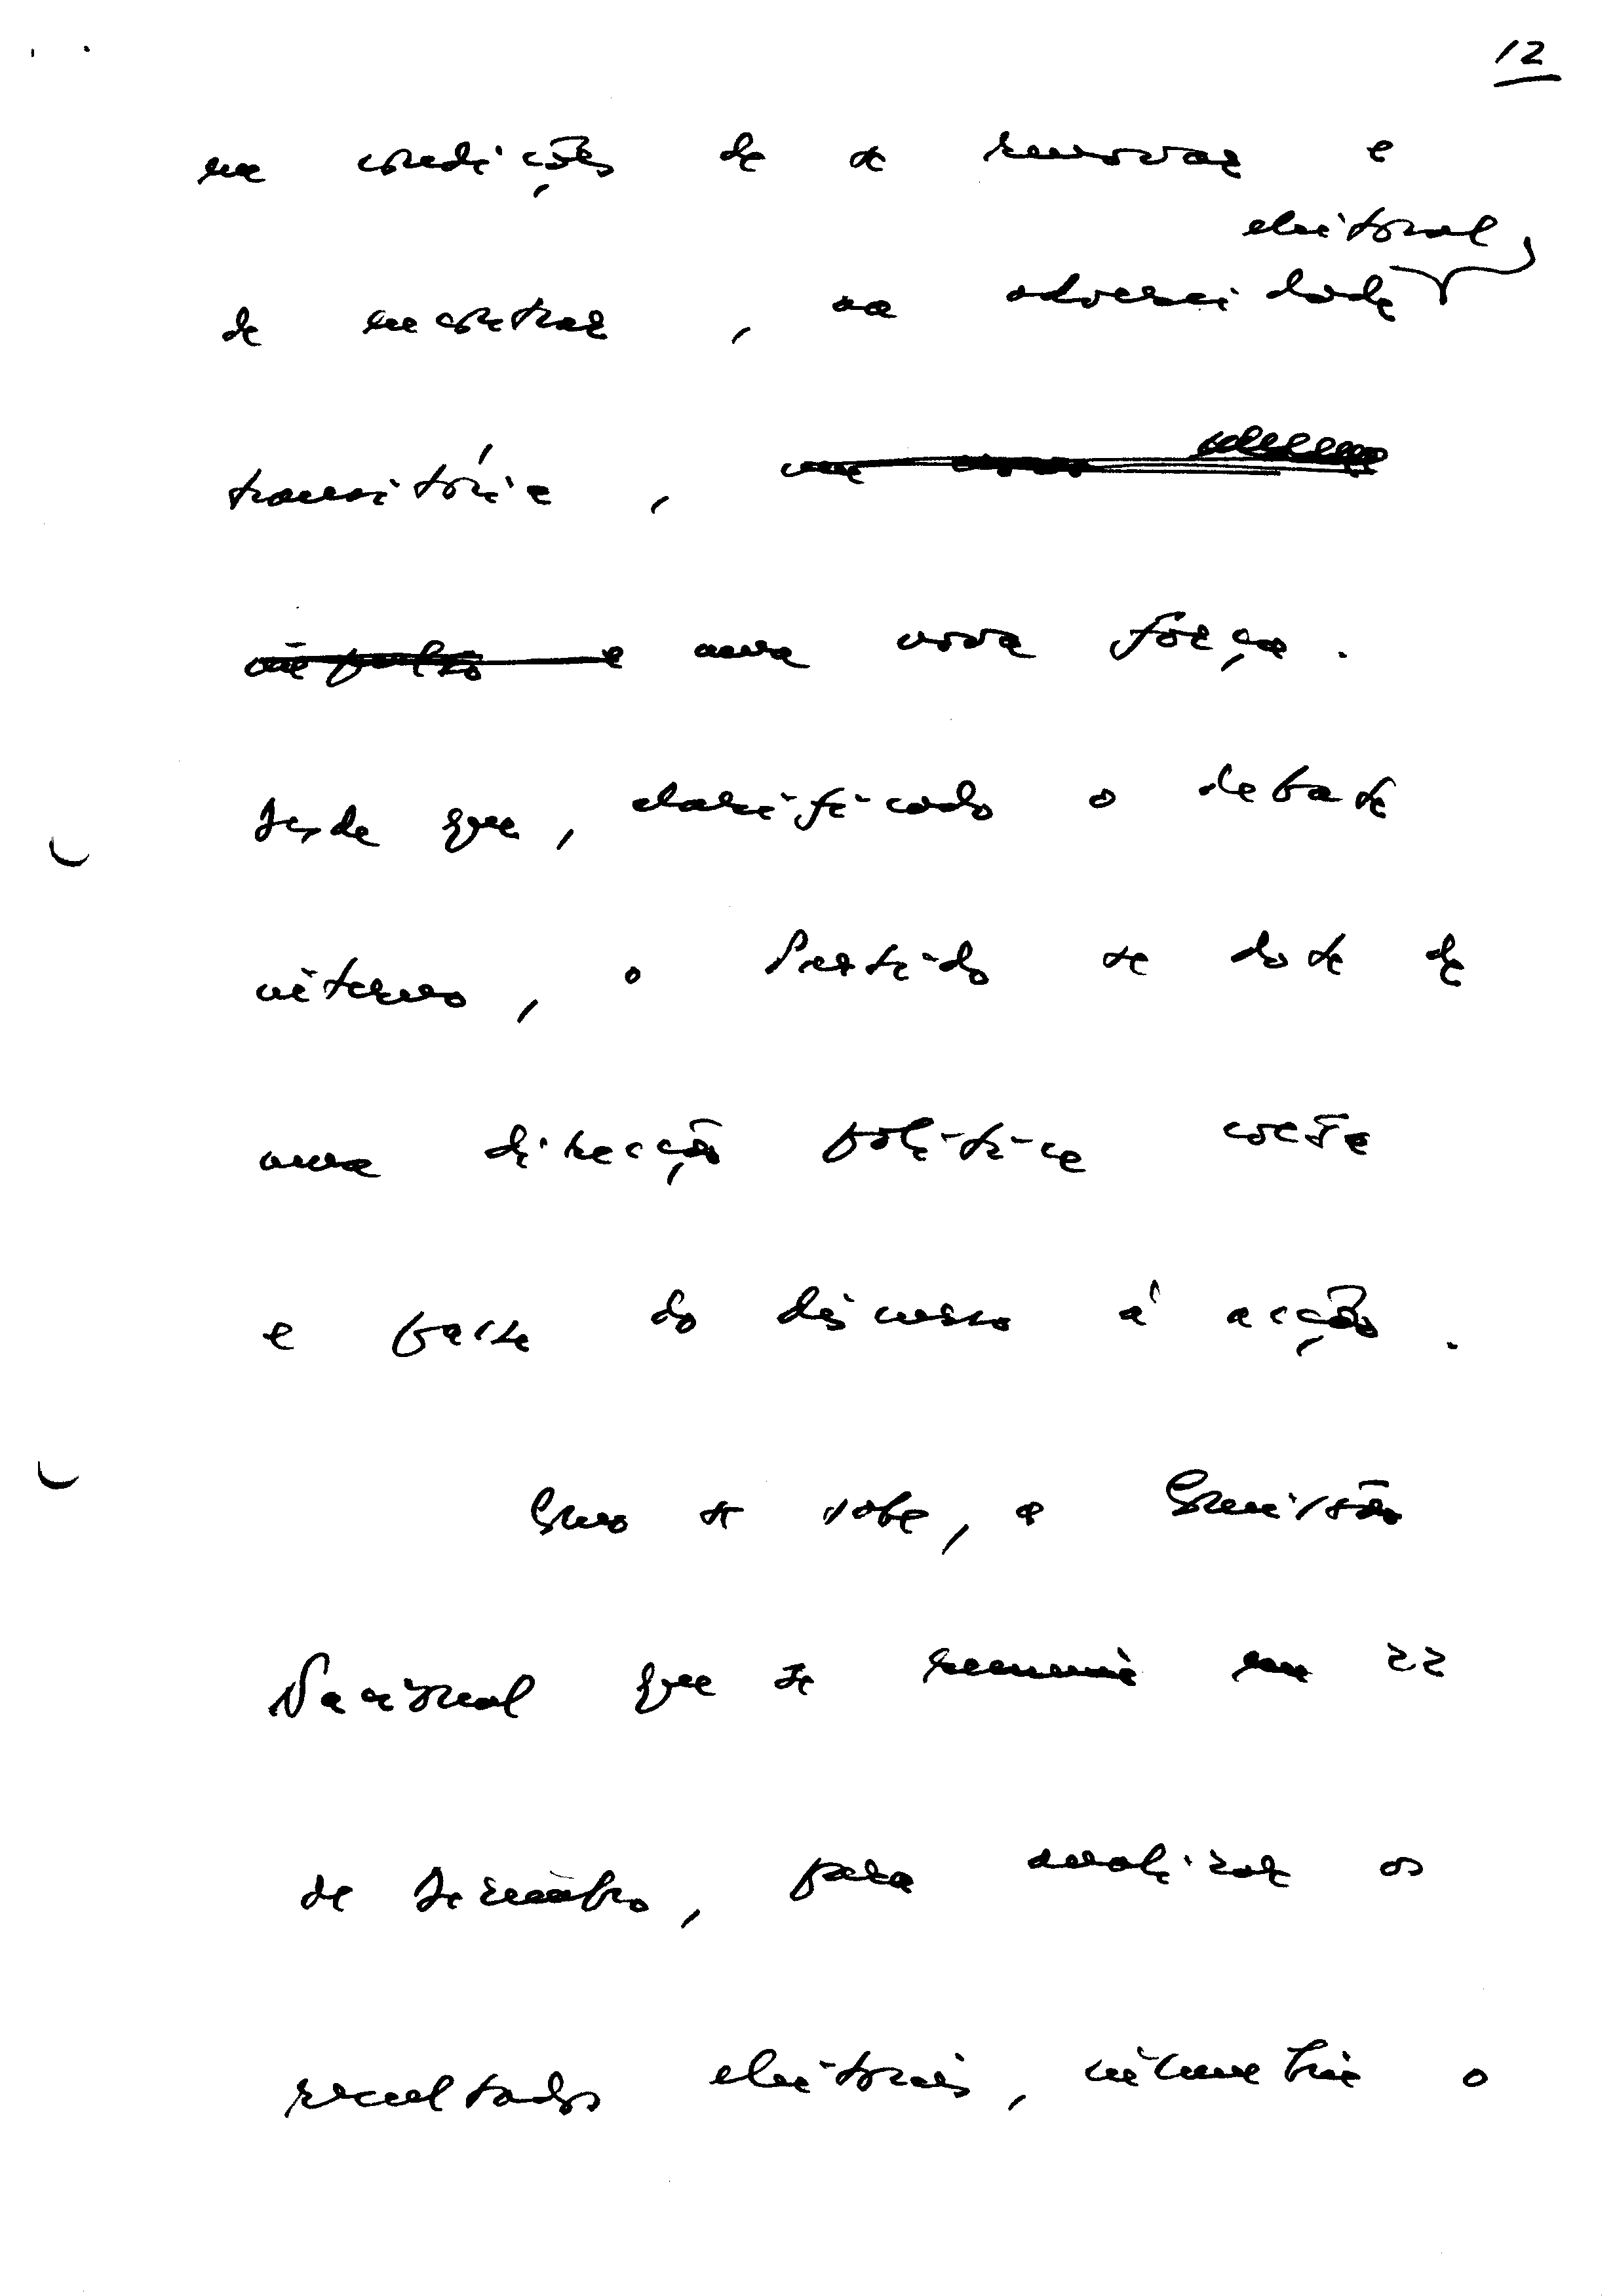 12
em condições de se renovar e
eleitoral
de encontrar, na adversidade
transitória,
e uma nova força.
Desde que, clarificado o debate
interno, o Partido se dote de
uma direcção política coesa
e passe do discurso à acção.
Como se sabe, a Comissão
Nacional que se reuniu em 22
de Dezembro, para analizar os
resultados eleitorais, incumbiu o